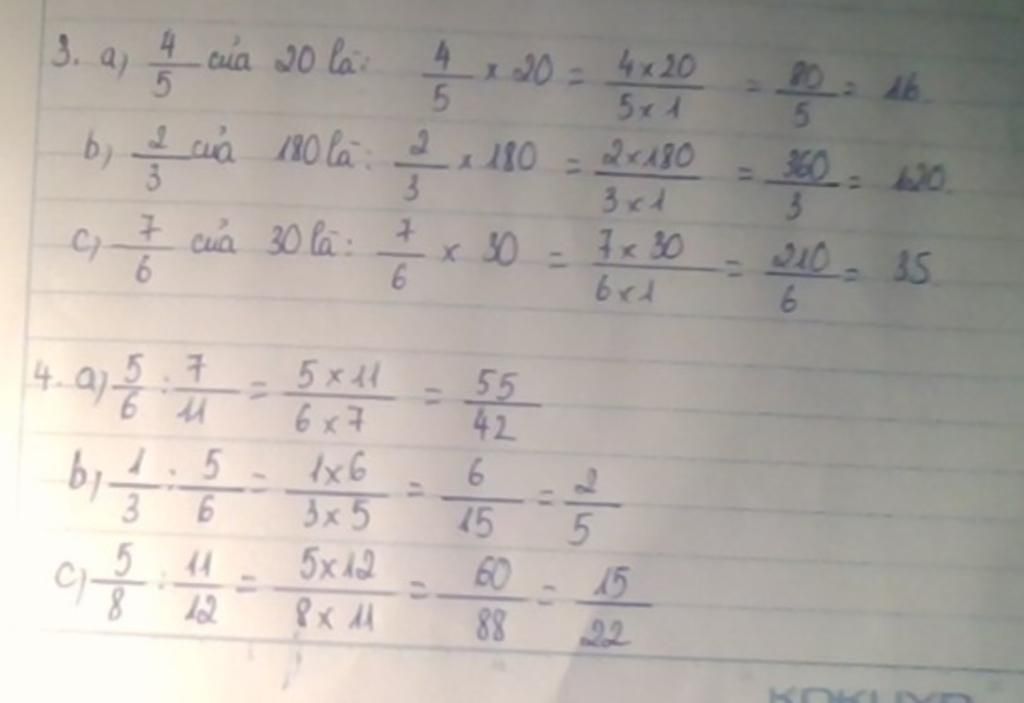 3. a) 4/5 của 20 là: 4/5 × 20 = 4×20/5×1 = 80/5 = 16
b) 2/3 của 180 là: 2/3 × 180 = 2×180/3×1 = 360/3 = 120
c) 7/6 của 30 là: 7/6 × 30 = 7×30/6×1 = 210/6 = 35
4. a) 5/6 : 7/11 = 5×11/6×7 = 55/42
b) 1/3 : 5/6 = 1×6/3×5 = 6/15 = 2/5
c) 5/8 : 11/12 = 5×12/8×11 = 60/88 = 15/22
KOKUYO